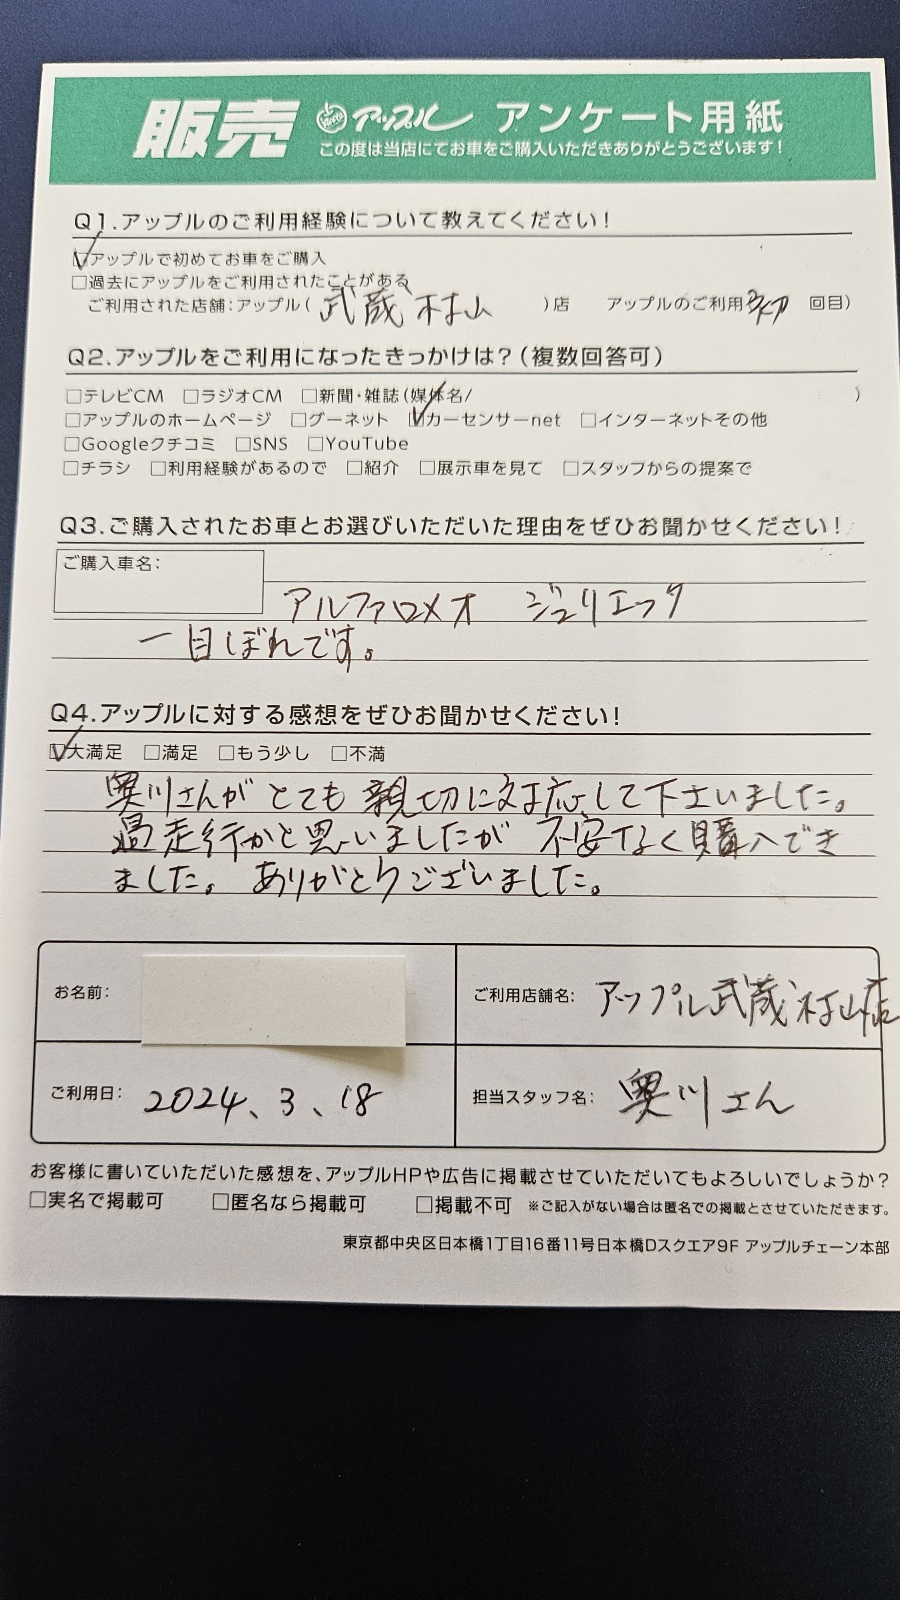 販売 アップル アンケート用紙
この度は当店にてお車をご購入いただきありがとうございます!
Q1.アップルのご利用経験について教えてください!
☑アップルで初めてお車をご購入
□過去にアップルをご利用されたことがある
ご利用された店舗:アップル(武蔵村山)店 アップルのご利用 初 回目)
Q2.アップルをご利用になったきっかけは?(複数回答可)
□テレビCM □ラジオCM □新聞・雑誌(媒体名/ )
□アップルのホームページ □グーネット ☑カーセンサーnet □インターネットその他
□Googleクチコミ □SNS □YouTube
□チラシ □利用経験があるので □紹介 □展示車を見て □スタッフからの提案で
Q3.ご購入されたお車とお選びいただいた理由をぜひお聞かせください!
ご購入車名:
アルファロメオ ジュリエッタ
一目ぼれです。
Q4.アップルに対する感想をぜひお聞かせください!
☑大満足 □満足 □もう少し □不満
奥川さんがとても親切に対応して下さいました。
過走行かと思いましたが 不安なく購入でき
ました。ありがとうございました。
お名前:
ご利用店舗名: アップル武蔵村山店
ご利用日: 2024、3、18
担当スタッフ名: 奥川さん
お客様に書いていただいた感想を、アップルHPや広告に掲載させていただいてもよろしいでしょうか?
□実名で掲載可 □匿名なら掲載可 □掲載不可 ※ご記入がない場合は匿名での掲載とさせていただきます。
東京都中央区日本橋1丁目16番11号日本橋Dスクエア9F アップルチェーン本部